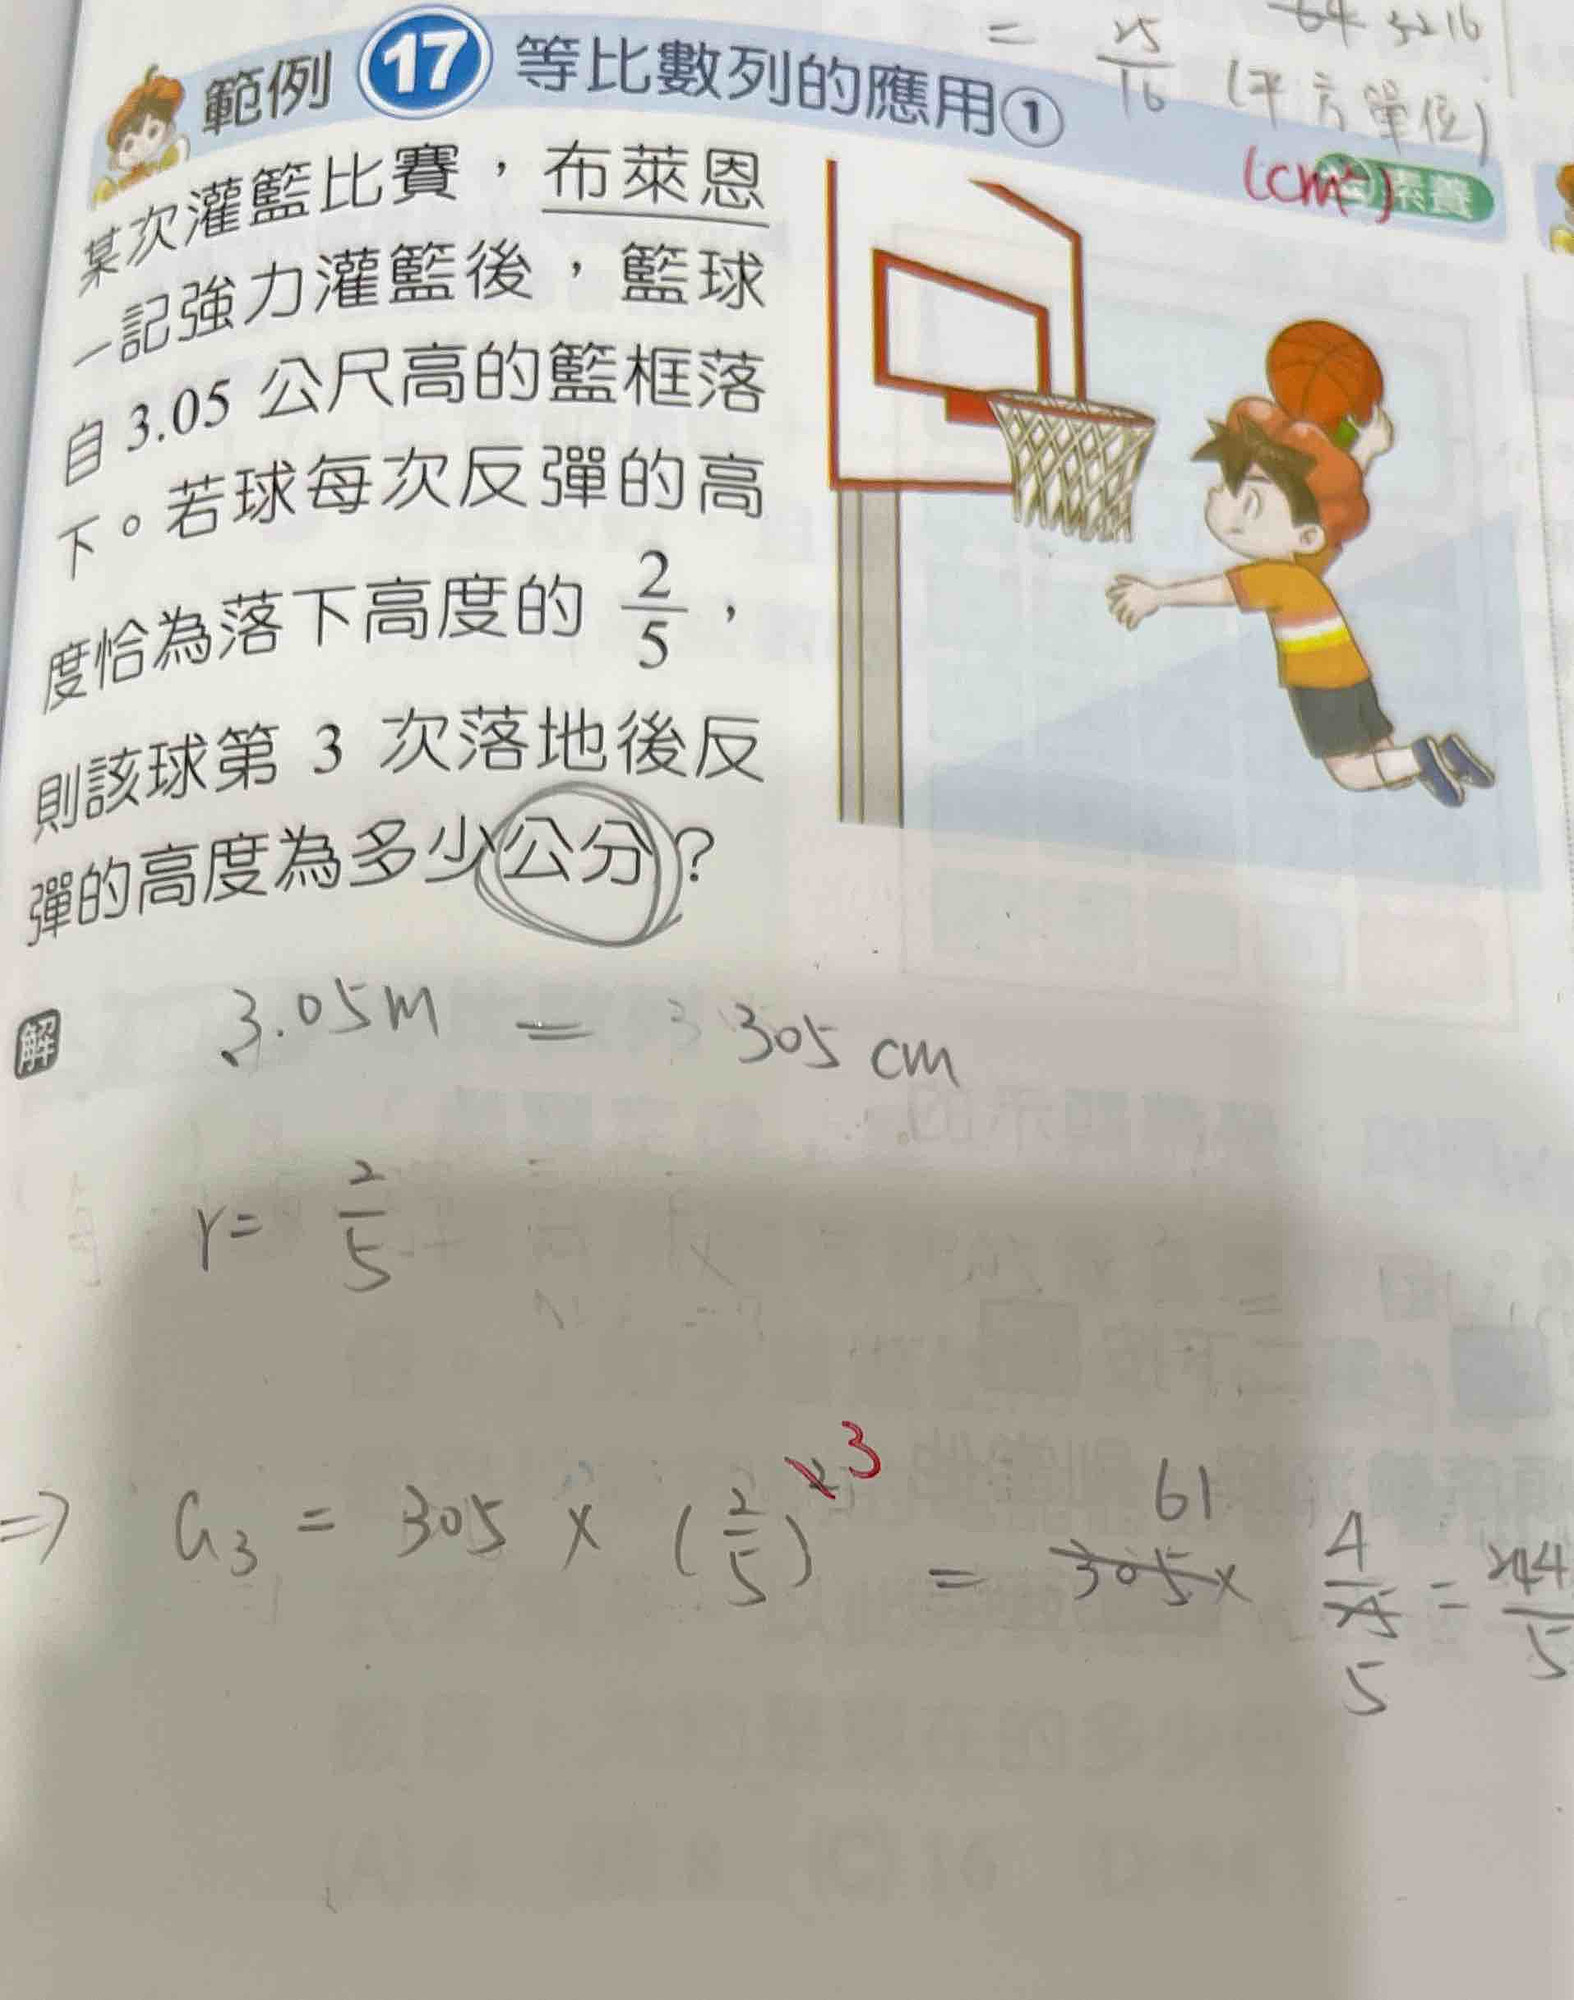 = 25/16 (平方單位)
(cm²)
範例 17 等比數列的應用①
素養
某次灌籃比賽，布萊恩
一記強力灌籃後，籃球
自 3.05 公尺高的籃框落
下。若球每次反彈的高
度恰為落下高度的 2/5，
則該球第 3 次落地後反
彈的高度為多少公分？
解
3.05m = 305 cm
r = 2/5
⇒ a₃ = 305 × (2/5)³ = 305 × 4/25 = 244/5
61
5